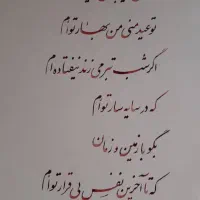 تو عید منی من بهار توام
اگر شب تبر می زند نیفتاده ام
که در سایه سار توام
بگو با زمین و زمان
که تا آخرین نفس بی قرار توام